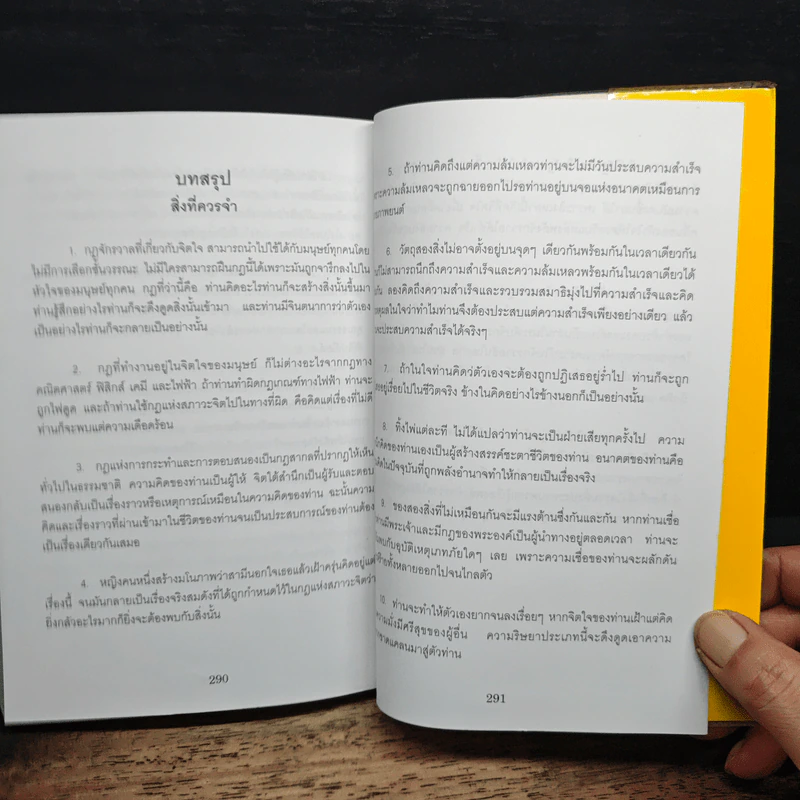 บทสรุป
สิ่งที่ควรจำ
1. กฎจักรวาลที่เกี่ยวกับจิตใจ สามารถนำไปใช้ได้กับมนุษย์ทุกคนโดย
ไม่มีการเลือกชั้นวรรณะ ไม่มีใครสามารถฝืนกฎนี้ได้เพราะมันถูกจารึกลงไปใน
หัวใจของมนุษย์ทุกคน กฎที่ว่านี้คือ ท่านคิดอะไรท่านก็จะสร้างสิ่งนั้นขึ้นมา
ท่านรู้สึกอย่างไรท่านก็จะดึงดูดสิ่งนั้นเข้ามา และท่านมีจินตนาการว่าตัวเอง
เป็นอย่างไรท่านก็จะกลายเป็นอย่างนั้น
2. กฎที่ทำงานอยู่ในจิตใจของมนุษย์ ก็ไม่ต่างอะไรจากกฎทาง
คณิตศาสตร์ ฟิสิกส์ เคมี และไฟฟ้า ถ้าท่านทำผิดกฎเกณฑ์ทางไฟฟ้า ท่านจะ
ถูกไฟดูด และถ้าท่านใช้กฎแห่งสภาวะจิตไปในทางที่ผิด คือคิดแต่เรื่องที่ไม่ดี
ท่านก็จะพบแต่ความเดือดร้อน
3. กฎแห่งการกระทำและการตอบสนองเป็นกฎสากลที่ปรากฏให้เห็น
ทั่วไปในธรรมชาติ ความคิดของท่านเป็นผู้ให้ จิตใต้สำนึกเป็นผู้รับและตอบ
สนองกลับเป็นเรื่องราวหรือเหตุการณ์เหมือนในความคิดของท่าน ฉะนั้นความ
คิดและเรื่องราวที่ผ่านเข้ามาในชีวิตของท่านจนเป็นประสบการณ์ของท่านต้อง
เป็นเรื่องเดียวกันเสมอ
4. หญิงคนหนึ่งสร้างมโนภาพว่าสามีนอกใจเธอแล้วเฝ้าครุ่นคิดอยู่แต่
เรื่องนี้ จนมันกลายเป็นเรื่องจริงสมดังที่ได้ถูกกำหนดไว้ในกฎแห่งสภาวะจิตว่า
ยิ่งกลัวอะไรมากก็ยิ่งจะต้องพบกับสิ่งนั้น
290
5. ถ้าท่านคิดถึงแต่ความล้มเหลวท่านจะไม่มีวันประสบความสำเร็จ
ความล้มเหลวจะถูกฉายออกไปรอท่านอยู่บนจอแห่งอนาคตเหมือนการ
ภาพยนต์
6. วัตถุสองสิ่งไม่อาจตั้งอยู่บนจุดๆ เดียวกันพร้อมกันในเวลาเดียวกัน
ไม่สามารถนึกถึงความสำเร็จและความล้มเหลวพร้อมกันในเวลาเดียวได้
กัน ลองคิดถึงความสำเร็จและรวบรวมสมาธิมุ่งไปที่ความสำเร็จและคิด
ผลในใจว่าทำไมท่านจึงต้องประสบแต่ความสำเร็จเพียงอย่างเดียว แล้ว
จะประสบความสำเร็จได้จริงๆ
7. ถ้าในใจท่านคิดว่าตัวเองจะต้องถูกปฏิเสธอยู่ร่ำไป ท่านก็จะถูก
อยู่เรื่อยไปในชีวิตจริง ข้างในคิดอย่างไรข้างนอกก็เป็นอย่างนั้น
8. ทิ้งไพ่แต่ละที ไม่ได้แปลว่าท่านจะเป็นฝ่ายเสียทุกครั้งไป ความ
คิดของท่านเองเป็นผู้สร้างสรรค์ชะตาชีวิตของท่าน อนาคตของท่านคือ
คิดในปัจจุบันที่ถูกพลังอำนาจทำให้กลายเป็นเรื่องจริง
9. ของสองสิ่งที่ไม่เหมือนกันจะมีแรงต้านซึ่งกันและกัน หากท่านเชื่อ
มีพระเจ้าและมีกฎของพระองค์เป็นผู้นำทางอยู่ตลอดเวลา ท่านจะ
พบกับอุบัติเหตุเภทภัยใดๆ เลย เพราะความเชื่อของท่านจะผลักดัน
ร้ายทั้งหลายออกไปจนไกลตัว
10. ท่านจะทำให้ตัวเองยากจนลงเรื่อยๆ หากจิตใจของท่านเฝ้าแต่คิด
ความมั่งมีศรีสุขของผู้อื่น ความริษยาประเภทนี้จะดึงดูดเอาความ
ขาดแคลนมาสู่ตัวท่าน
291